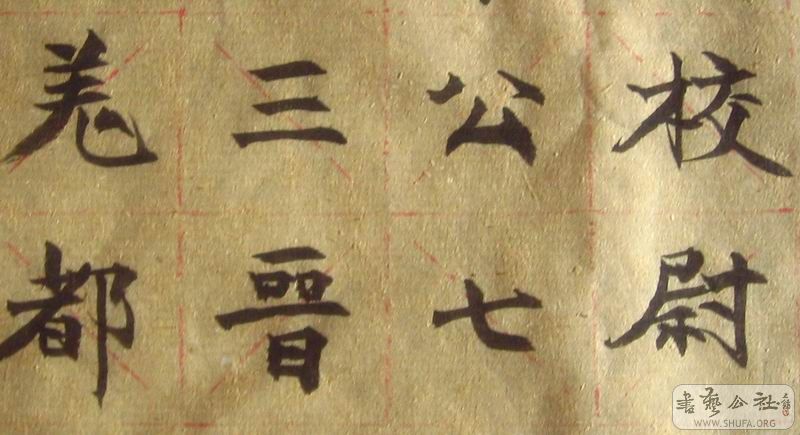 校尉
公七
三晉
羌都
書藝公社
WWW.SHUFA.ORG